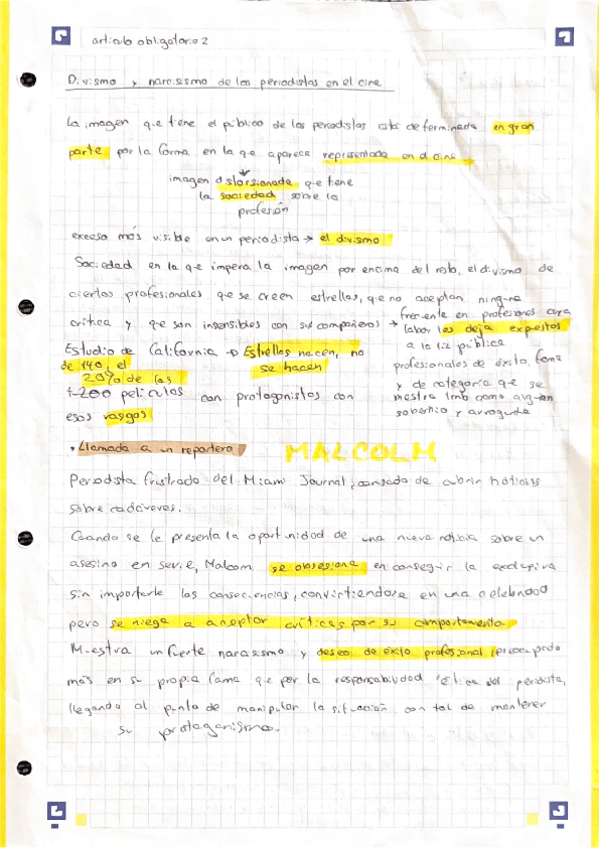 articulo obligatorio 2
Divismo y narcisismo de los periodistas en el cine
La imagen que tiene el público de los periodistas está determinada en gran
parte por la forma en la que aparece representada en el cine
imagen distorsionada que tiene
la sociedad sobre la
profesión
exceso más visible en un periodista → el divismo
Sociedad en la que impera la imagen por encima del resto, el divismo de
ciertos profesionales que se creen estrellas, que no aceptan ninguna
crítica y que son insensibles con sus compañeros →
frecuente en profesiones cuya
labor les deja expuestos
a la luz pública
profesionales de éxito, fama
y de categoría que se
muestra como alguien
soberbio y arrogante
Estudio de California → Estrellas nacen, no
se hacen
de 140, el
20% de las
1-200 peliculas con protagonistas con
esos rasgos
• Llamada a un reportero
MALCOLM
Periodista frustrado del Miami Journal, cansado de cubrir noticias
sobre cadáveres.
Cuando se le presenta la oportunidad de una nueva noticia sobre un
asesino en serie, Malcom se obsesiona en conseguir la exclusiva
sin importarle las consecuencias, convirtiendose en una celebridad
pero se niega a aceptar críticas por su comportamiento
Muestra un fuerte narcisismo y deseo de éxito profesional, preocupado
más en su propia fama que por la responsabilidad ética del periodista,
llegando al punto de manipular la situación con tal de mantener
su protagonismo.